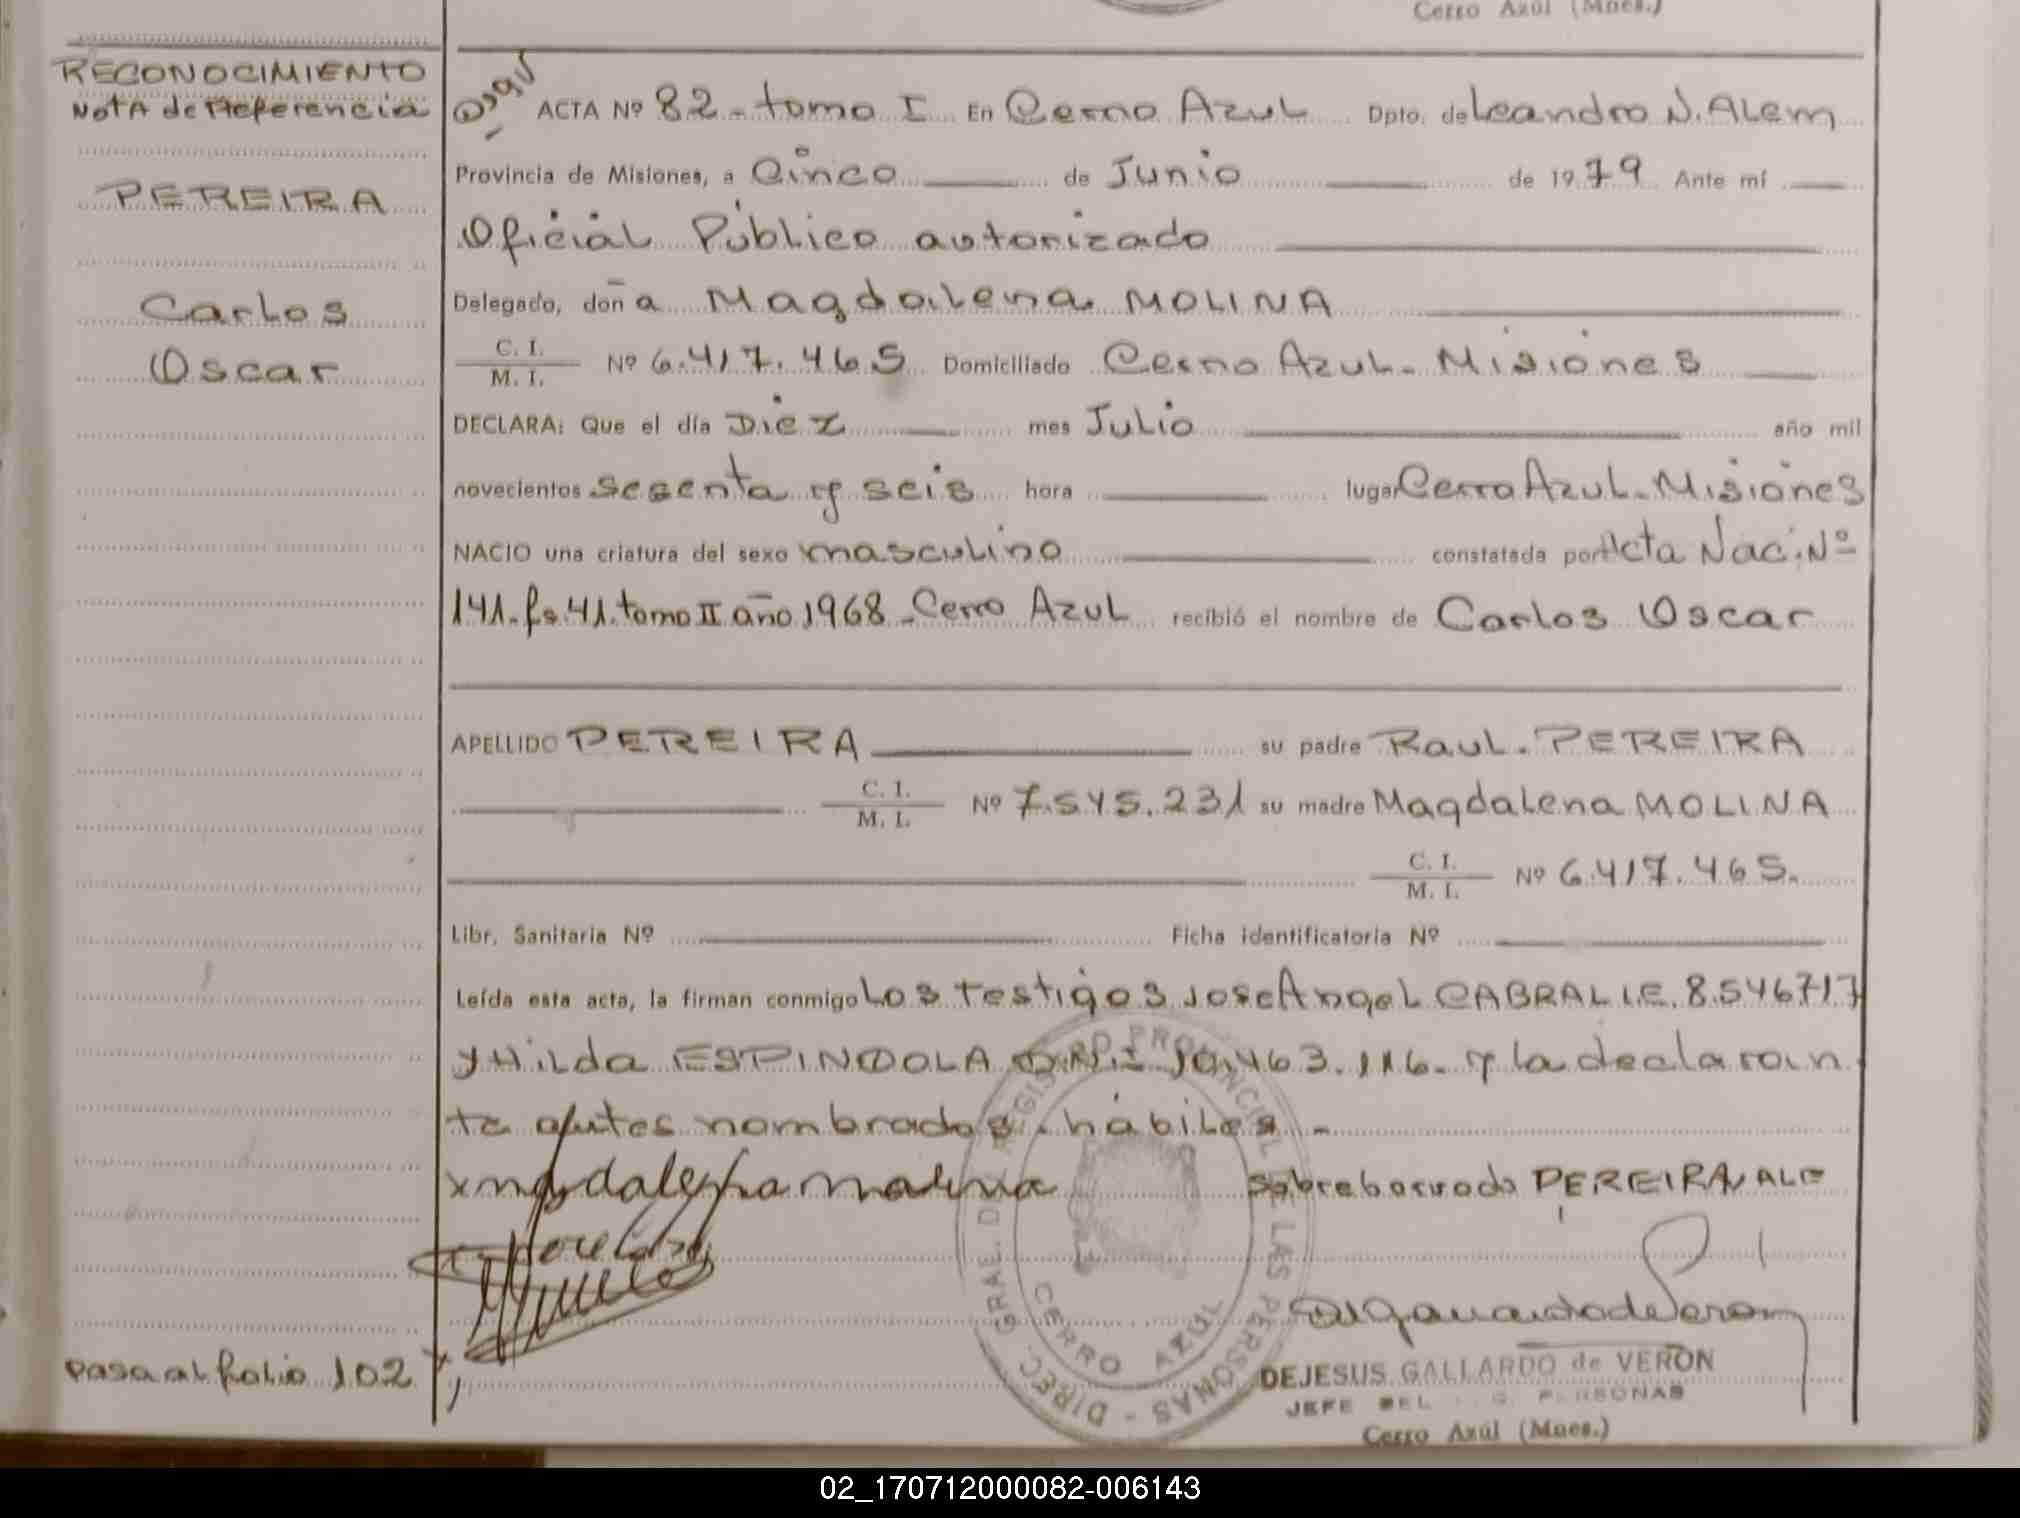 Cerro Azúl (Mnes.)
RECONOCIMIENTO
Nota de Referencia
PEREIRA
Carlos
Oscar
pasa al folio 102
ACTA Nº 82 - tomo I En Cerro Azul Dpto. de Leandro N. Alem
Provincia de Misiones, a Cinco de Junio de 1979 Ante mí
Oficial Público autorizado
Delegado, doña Magdalena MOLINA
C. I.
M. I. Nº 6.417.465 Domiciliado Cerro Azul - Misiones
DECLARA: Que el día Diez mes Julio año mil
novecientos sesenta y seis hora lugar Cerro Azul - Misiones
NACIO una criatura del sexo masculino constatada por Acta Nac. Nº
141. fs. 41. tomo II año 1968 - Cerro Azul recibió el nombre de Carlos Oscar
APELLIDO PEREIRA su padre Raul. PEREIRA
C. I.
M. I. Nº 7.545.231 su madre Magdalena MOLINA
C. I.
M. I. Nº 6.417.465.
Libr. Sanitaria Nº Ficha identificatoria Nº
Leída esta acta, la firman conmigo Los testigos Jose Angel CABRAL I.E. 8.546717
y Hilda ESPINDOLA D.N.I 10.463.116. y la declaran
te antes nombrados. hábiles -
x magdalena molina sobreborrado PEREIRA, ALE
DIREC. GRAL. DEL REGISTRO PROVINCIAL DE LAS PERSONAS -
CERRO AZUL
DEJESUS GALLARDO de VERON
JEFE DEL G. PERSONAS
Cerro Azúl (Mnes.)
02_170712000082-006143